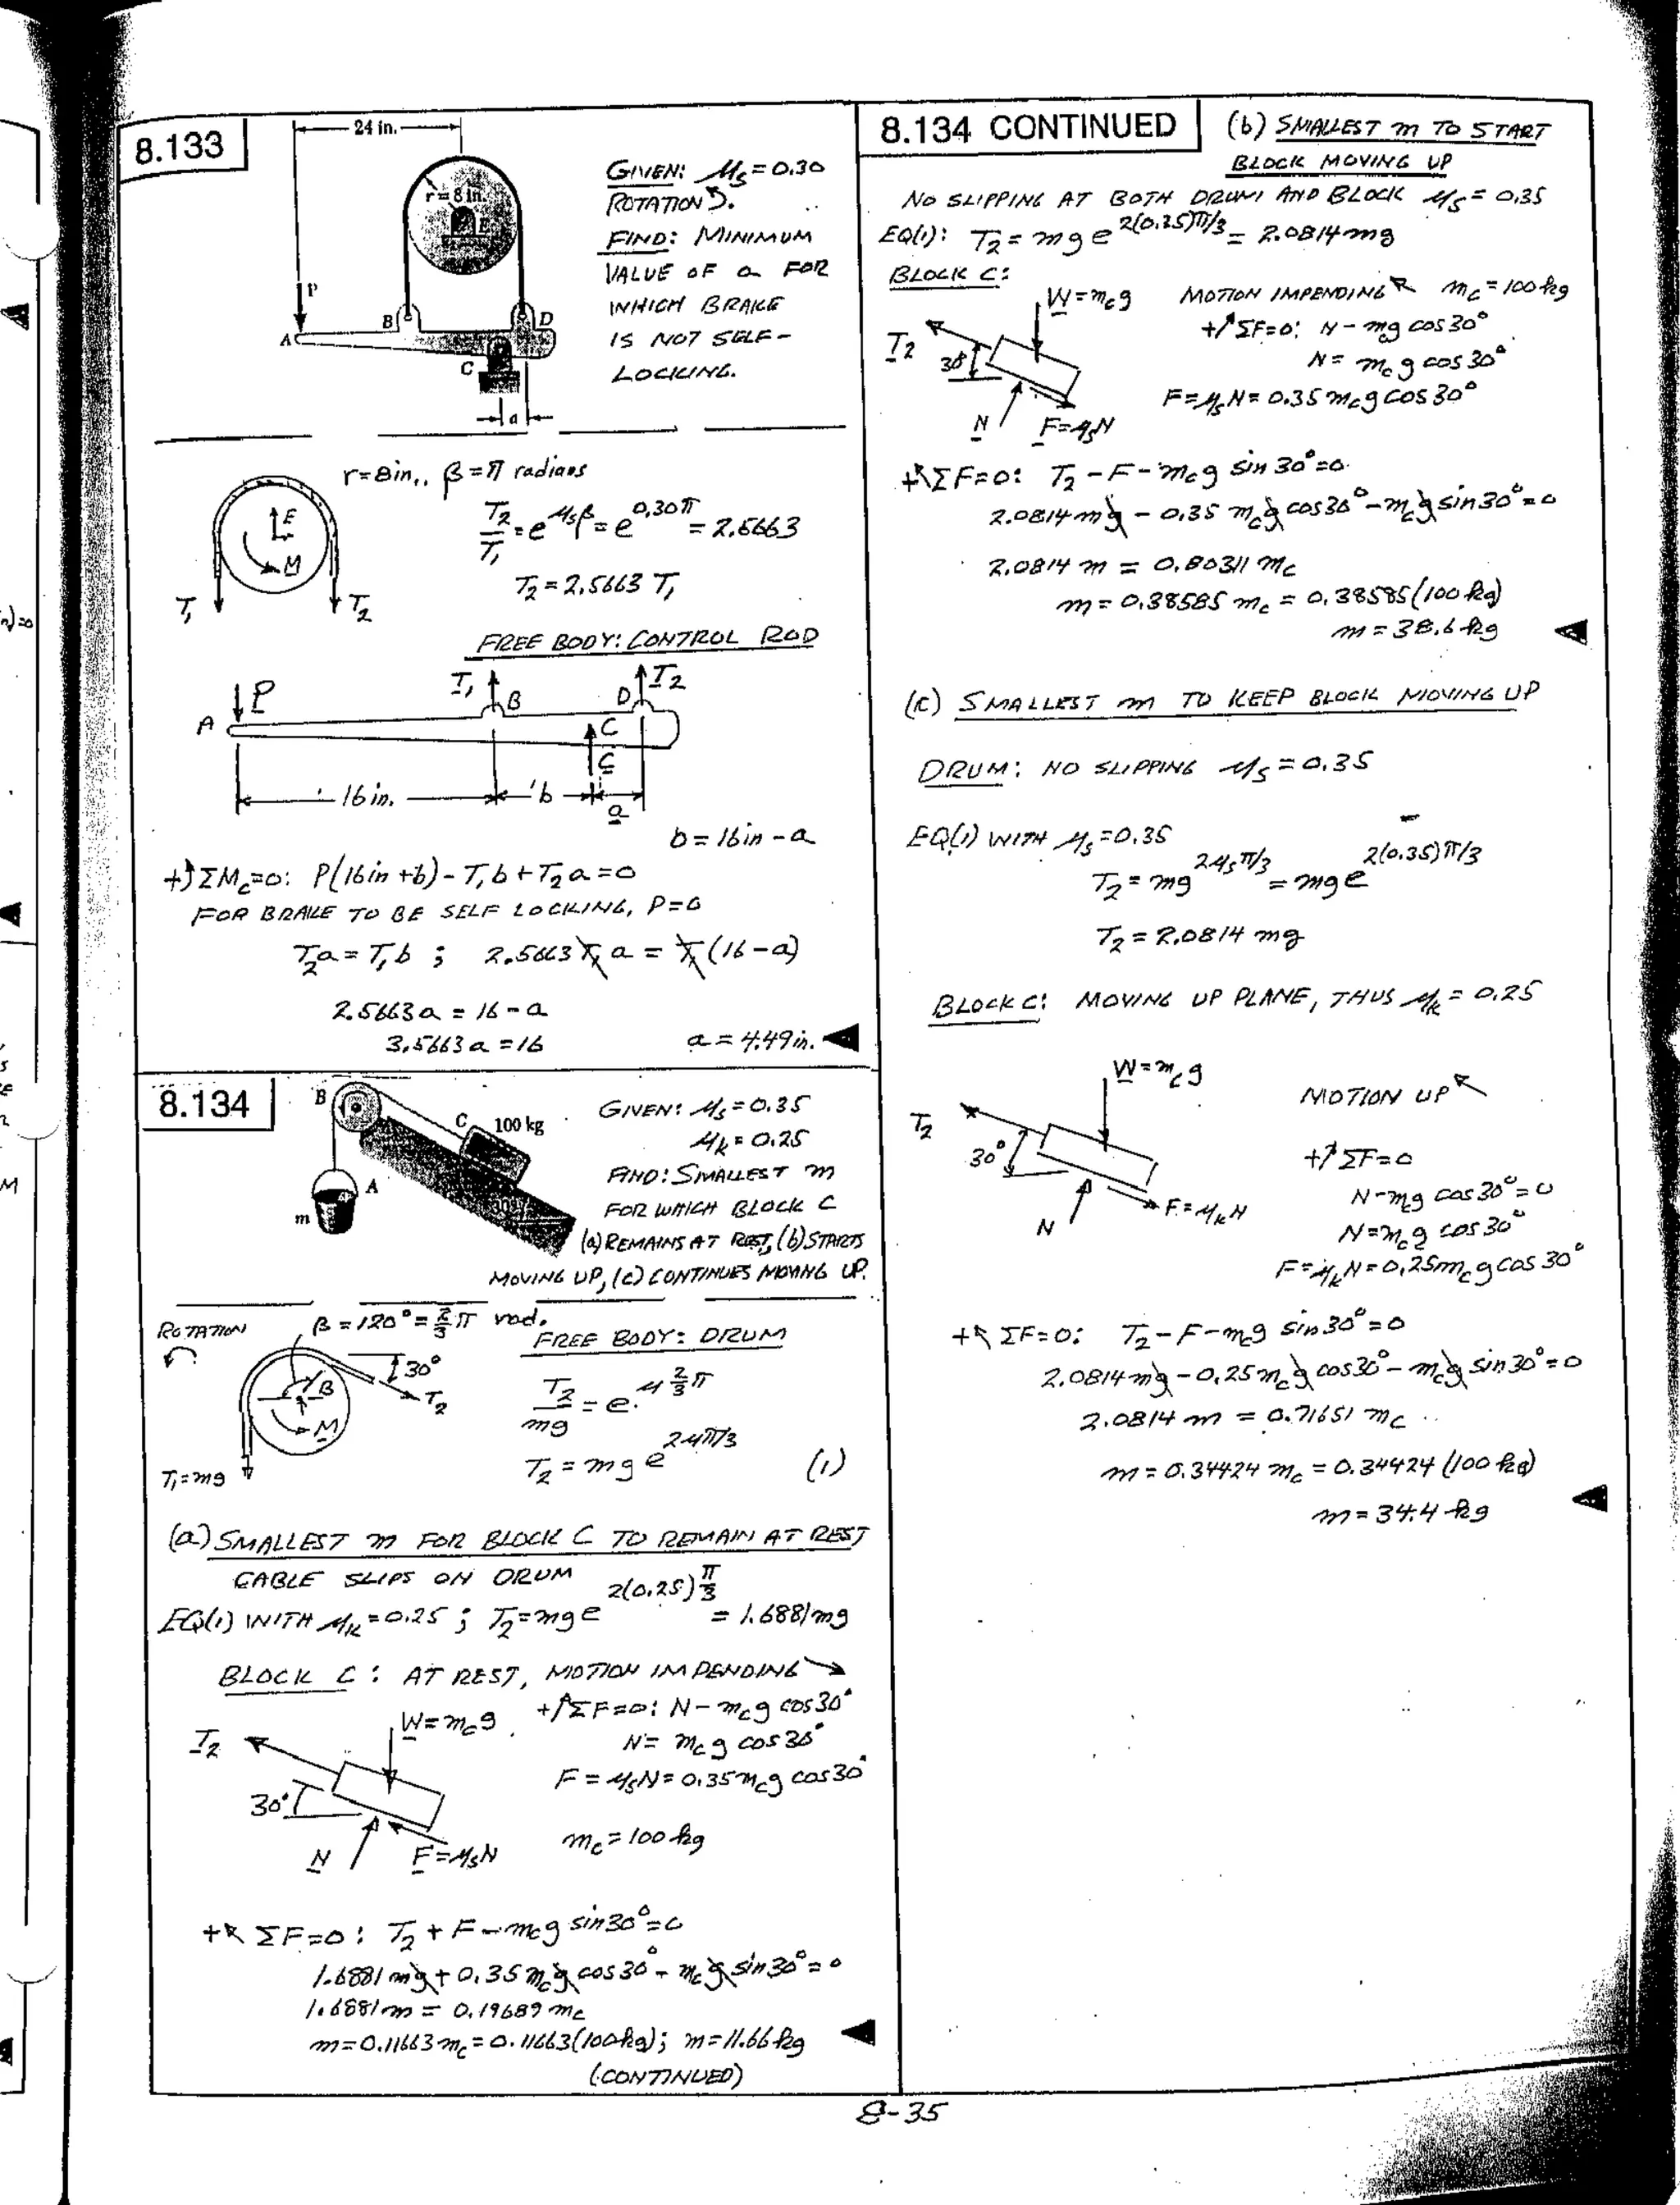 8.133
24 in.
r = 8 in.
E
P
B
D
A
C
a
GIVEN: μs = 0.30
ROTATION ↺.
FIND: MINIMUM
VALUE OF a FOR
WHICH BRAKE
IS NOT SELF-
LOCKING.
r=8in., β=π radians
T2/T1 = e^μsβ = e^0.30π = 2.5663
T2 = 2.5663 T1
E
M
T1
T2
FREE BODY: CONTROL ROD
P
T1
B
D
T2
A
C
C
16 in.
b
a
b = 16in - a
+↺ΣMC=0: P(16in +b) - T1b + T2a = 0
FOR BRAKE TO BE SELF LOCKING, P=0
T2a = T1b ; 2.5663 T1 a = T1 (16-a)
2.5663a = 16 - a
3.5663a = 16
a = 4.49in. ◄
8.134
B
C
100 kg
A
m
30°
GIVEN: μs = 0.35
μk = 0.25
FIND: SMALLEST m
FOR WHICH BLOCK C
(a) REMAINS AT REST, (b) STARTS
MOVING UP, (c) CONTINUES MOVING UP.
ROTATION
β = 120° = 2/3 π rad.
FREE BODY: DRUM
30°
β
T2
M
T1=mg
T2/mg = e^μ 2/3 π
T2 = mg e^2μπ/3 (1)
(a) SMALLEST m FOR BLOCK C TO REMAIN AT REST
CABLE SLIPS ON DRUM
EQ(1) WITH μk = 0.25 ; T2 = mg e^2(0.25)π/3 = 1.6881mg
BLOCK C : AT REST, MOTION IMPENDING ↘
+↗ΣF=0: N - mcg cos30°
W = mcg
T2
N = mcg cos30°
F = μsN = 0.35mcg cos30°
30°
mc = 100 kg
N
F=μsN
+↖ ΣF=0 : T2 + F - mcg sin30°=0
1.6881mg + 0.35mcg cos30° - mcg sin30° = 0
1.6881m = 0.19689mc
m=0.11663mc = 0.11663(100kg); m=11.66kg ◄
(CONTINUED)
8.134 CONTINUED
(b) SMALLEST m TO START
BLOCK MOVING UP
NO SLIPPING AT BOTH DRUM AND BLOCK μs = 0.35
EQ(1): T2 = mg e^2(0.35)π/3 = 2.0814mg
BLOCK C:
W=mcg
MOTION IMPENDING ↖ mc = 100kg
+↗ΣF=0: N - mg cos30°
T2
30°
N = mcg cos30°
F=μsN= 0.35mcg cos30°
N
F=μsN
+↖ΣF=0: T2 - F - mcg sin30°=0
2.0814mg - 0.35 mcg cos30° - mcg sin30°=0
2.0814 m = 0.80311 mc
m = 0.38585 mc = 0.38585(100kg)
m = 38.6 kg ◄
(c) SMALLEST m TO KEEP BLOCK MOVING UP
DRUM: NO SLIPPING μs = 0.35
EQ(1) WITH μs=0.35
T2 = mg^2μsπ/3 = mg e^2(0.35)π/3
T2 = 2.0814 mg
BLOCK C: MOVING UP PLANE, THUS μk = 0.25
W = mcg
MOTION UP ↖
T2
30°
+↗ ΣF=0
N-mcg cos30°=0
N
F=μkN
N=mcg cos30°
F=μkN=0.25mcg cos30°
+↖ ΣF=0: T2 - F - mcg sin30°=0
2.0814mg - 0.25mcg cos30° - mcg sin30°=0
2.0814 m = 0.71651 mc
m = 0.34424 mc = 0.34424 (100kg)
m = 34.4 kg ◄
8-35